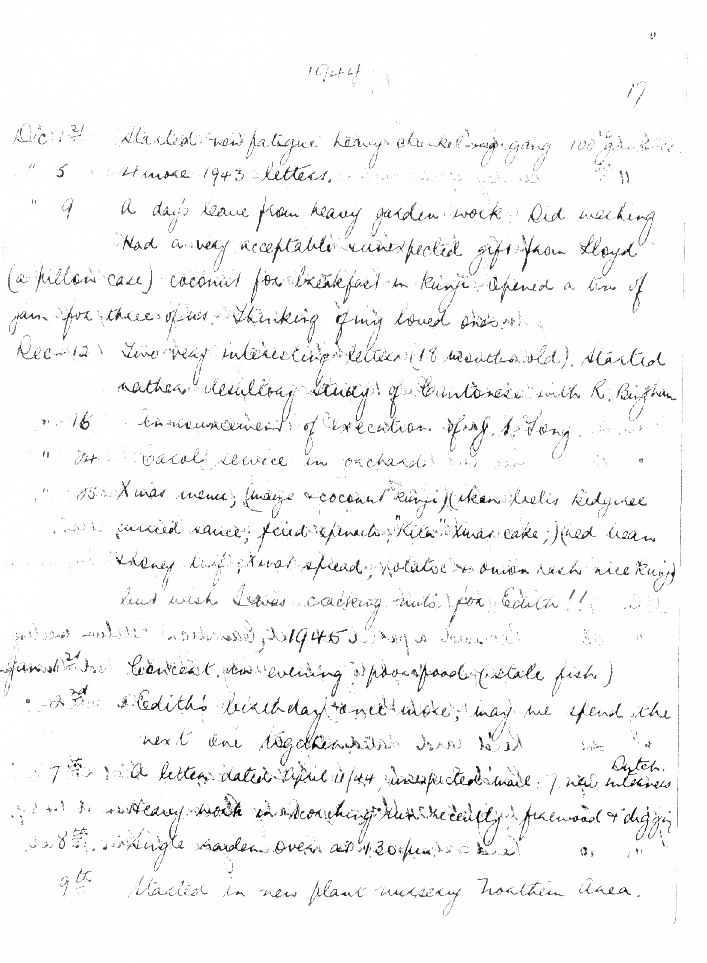 1944
17
Dec 1st Started new fatigue heavy chunkelling gang 100
" 5 4 more 1943 letters.
" 9 A day's leave from heavy garden work. Did washing
Had a very acceptable & unexpected gift from Lloyd
(a pillow case) coconut for breakfast in kunji opened a tin of
jam for three of us. Thinking of my loved ones.
Dec 12 Two very interesting letters (18 months old). Started
rather desultory study of Cantonese with R. Bingham
" 16 Announcement of execution of Long.
" 24 Carol service in orchard
" 25 Xmas menu; (maize & coconut kunji) (ikan bilis kidgree
curried sauce; fried spinach, "Kita" Xmas cake;) (red bean
Xmas spread; potatoe & onion hash nice kunji)
but wish I was cracking nuts for Edith!!
1945
Jan 1st Concert in evening & poor food (stale fish)
" 2nd Edith's birthday once more; may we spend the
next one together
Dutch
" 7th A letter dated April 11/44, unexpected mail. 7 new internees
Heavy work in scorching sun recently firewood & digging
" 8th Single garden over at 4.30 pm
9th Started in new plant nursery Northern Area.